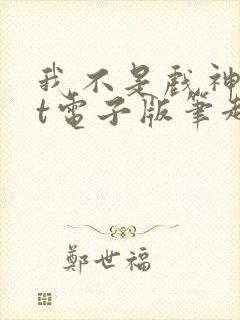 我不是戲神
t電子版筆趣
鄭世福